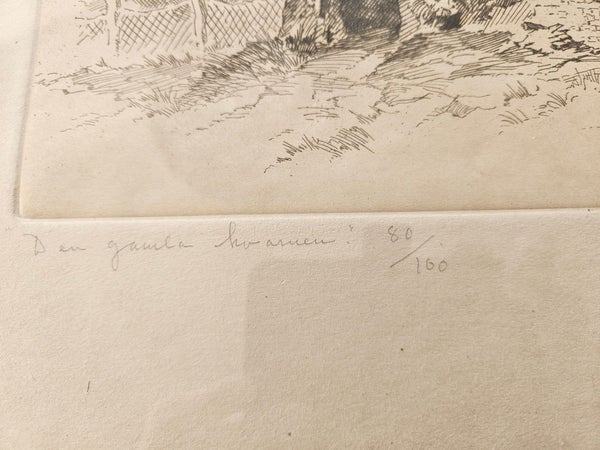 "Den gamla kvarnen." 80/100